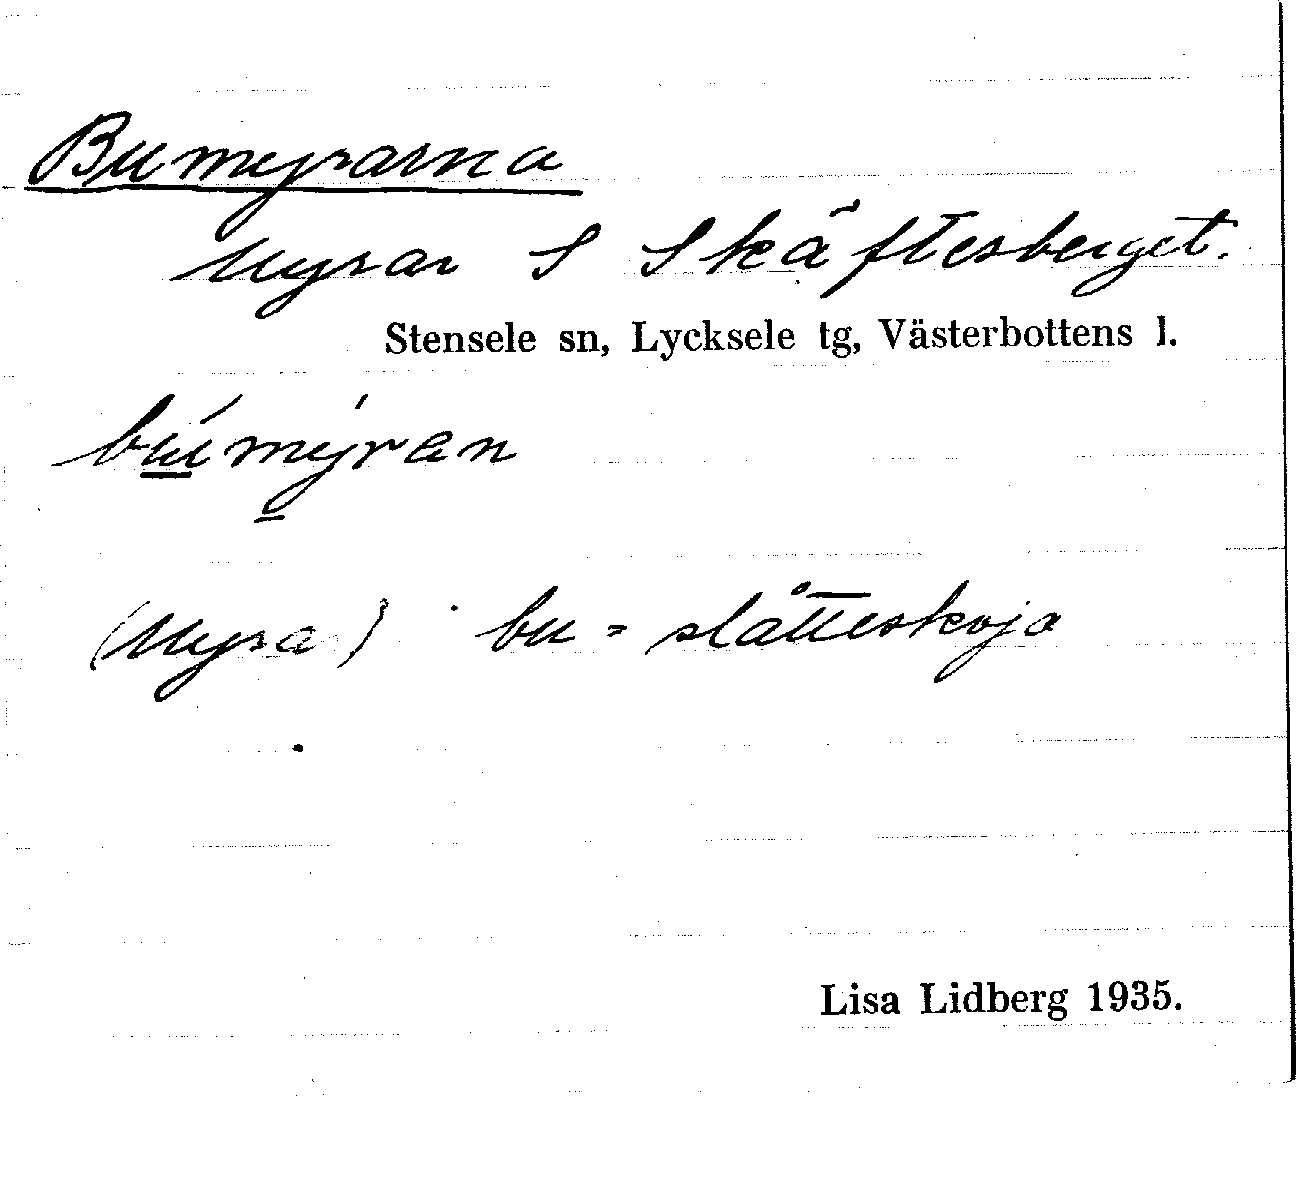 Bumyrarna
Myrar S Skäftesberget.
Stensele sn, Lycksele tg, Västerbottens l.
búmýran
(Myra) bu = slåtteskoja
Lisa Lidberg 1935.